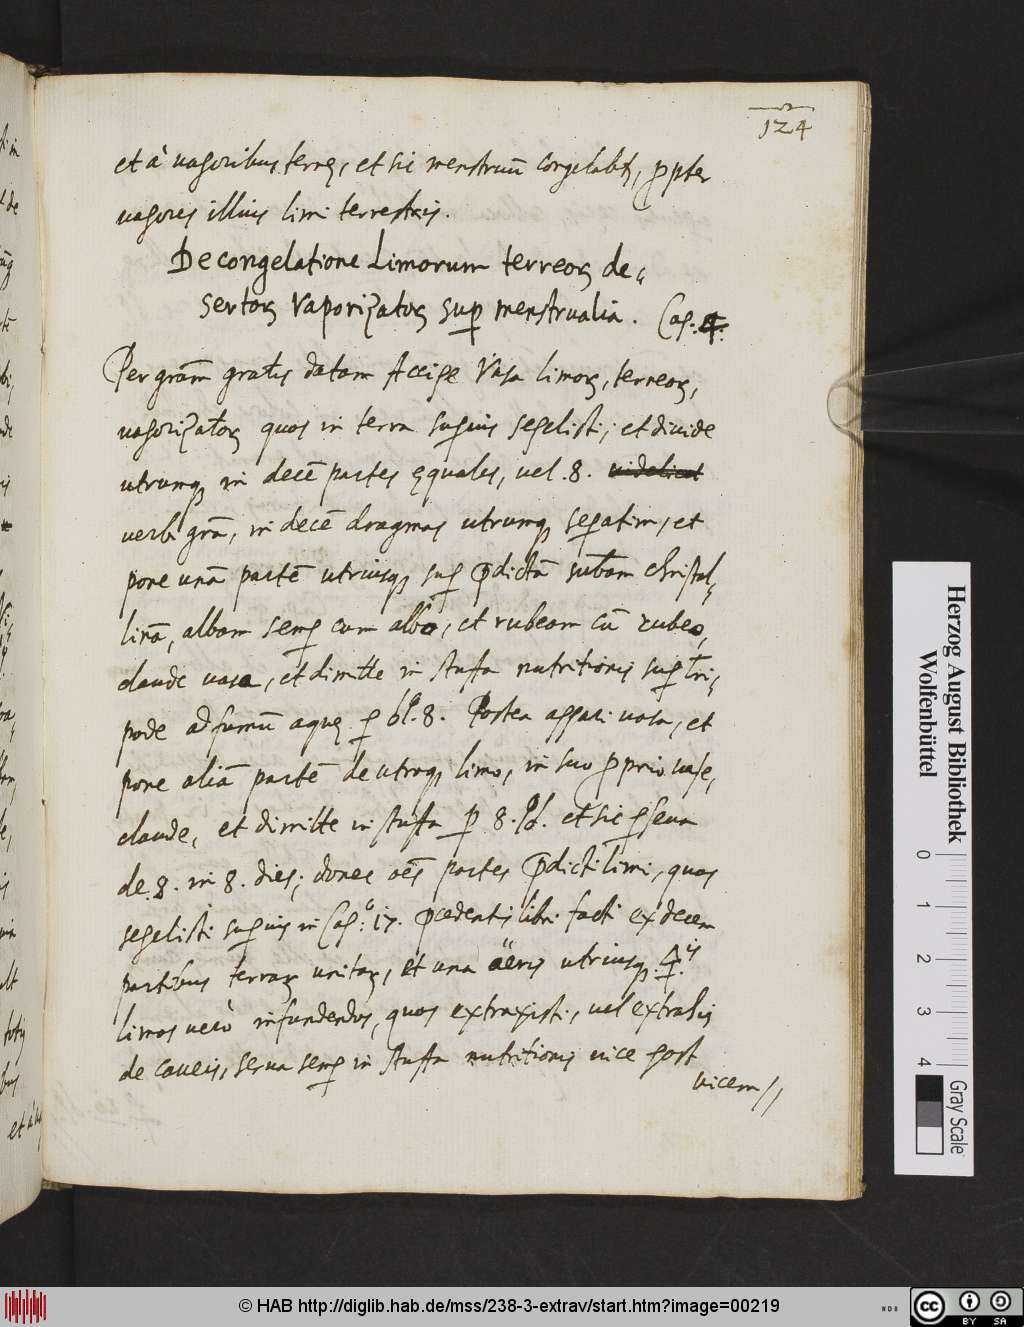 124
et à uaporibus terrę, et sic menstruū congelabit~, ꝓpter
uapores illius limi terrestris.
De congelatione Limorum terreoꝝ de„
sertoꝝ Vaporizatoꝝ sup̱ menstrualia. Cap: 4.
Per grām gratis datam Accipe Vasa limoꝝ, terreoꝝ,
uaporizatoꝝ quos in terra superius sepelisti; et diuide
utrumqꝫ in decē partes ęquales, uel .8. uidelicet
uerbi grā, in decē dragmas utrumqꝫ separatim, et
pone unā partē utriusqꝫ sup̱ p̄dictā subam christal„
linā, albam semp̱ cum albo, et rubeam cū rubeo,
claude uasa, et dimitte in stuffa nutritionis sup̱ tri„
pode ad fumū aquę p̱ 8. Postea apperi uasa, et
pone aliā partē de utroqꝫ limo, in suo ꝓprio uase,
claude, et dimitte in stuffa p̱ 8. et sic p̱seua
de .8. in 8. dies; donec oēs partes p̄dicti limi, quos
sepelisti superius in Cap:º 17. p̄cedentis libri facti ex decem
partibus terraꝝ unitaꝝ, et una aëris utriusqꝫ
limos uerò infundendos, quos extraxisti, uel extrahis
de caueis, serua semp̱ in stuffa nutritionis uice post
uicem//
et à
Herzog August Bibliothek
Wolfenbüttel
0 1 2 3 4
Gray Scale
© HAB http://diglib.hab.de/mss/238-3-extrav/start.htm?image=00219
cc BY SA